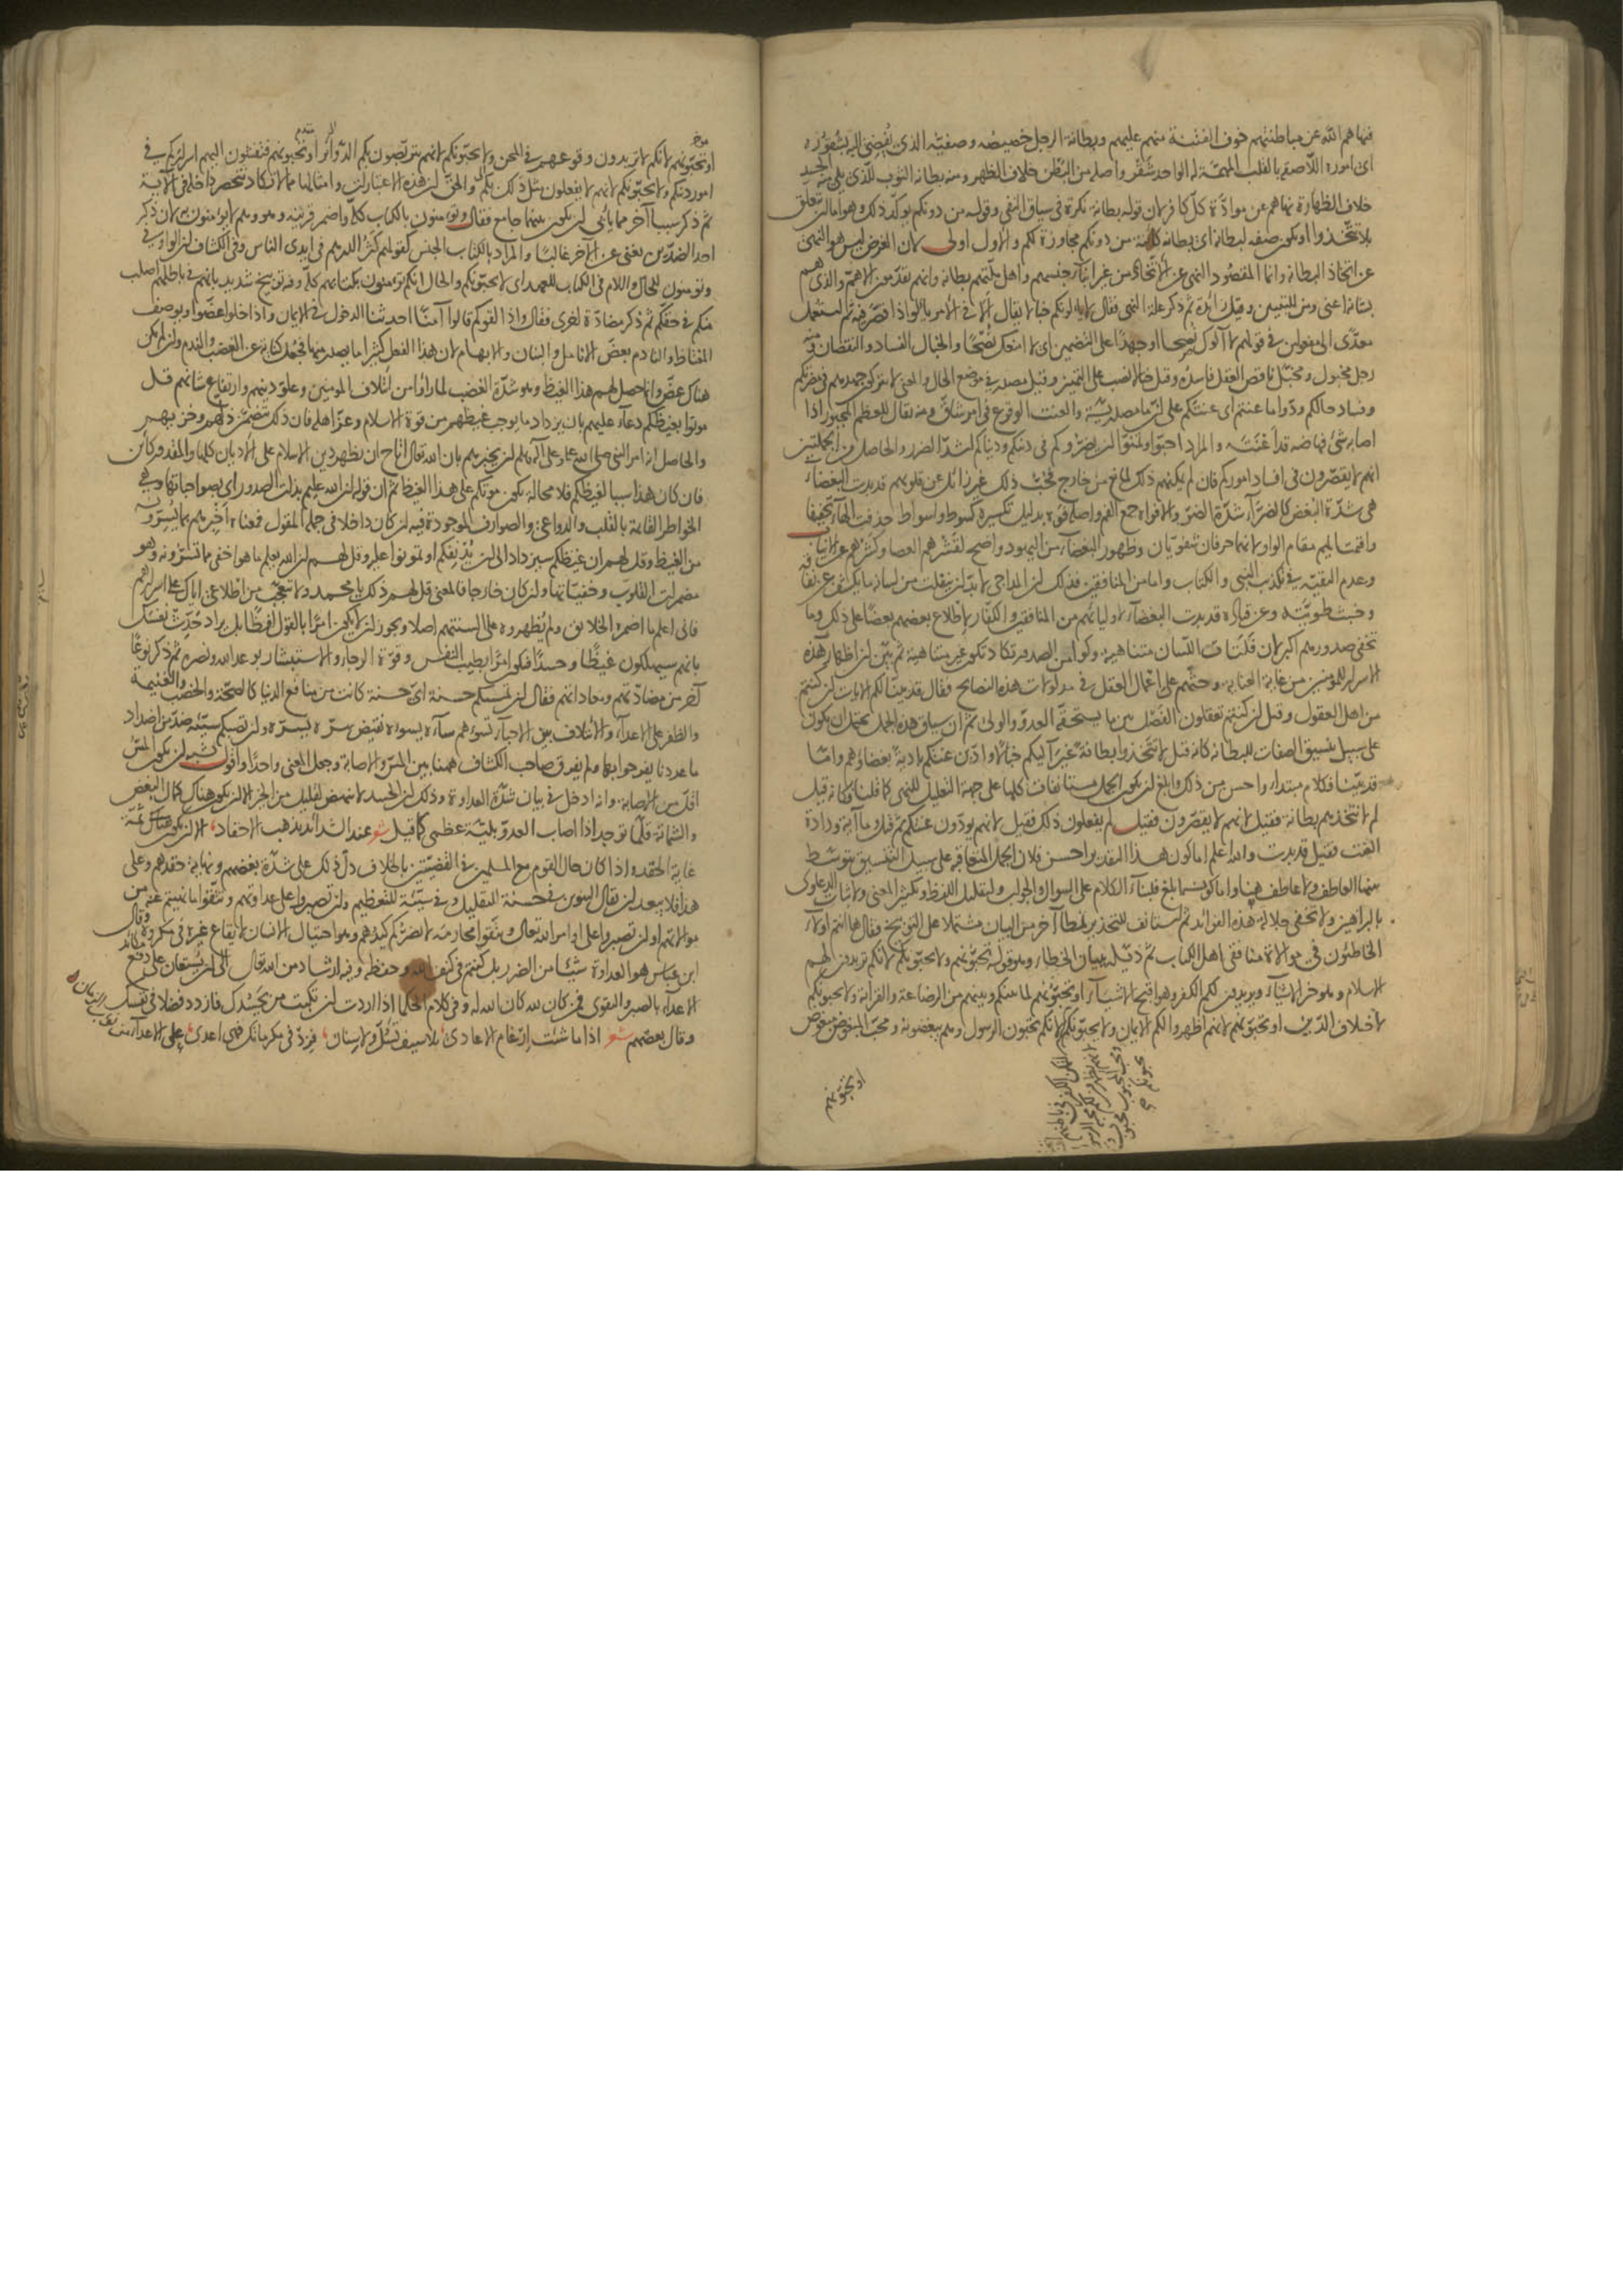 فنهاهم الله عن مباطنتهم خوف الفتنة منهم عليهم وبطانة الرجل خصيصه وصفيّه الذى يُفضِى اليه بشقوره
اى اموره اللاصقة بالقلب المهمّة له الواحد شَقْر واصله من البطن خلاف الظهر ومنه بطانة الثوب للّذى يلى منه الجسد
خلاف الظهارة نهاهم عن موادّة كلّ كافر لان قوله بطانة نكرة فى سياق النفى وقوله من دونكم يؤكد ذلك وهو اما ان تتعلق
بلا تتّخذوا او يكون صفة لبطانة اى بطانة كائنة من دونكم مجاوزة لكم والاول اولى لان الغرض ليس هو النهى
عن اتخاذ البطانة وانما المقصود النهى عن الاتّخاذ من غير ابناء جنسهم واهل ملّتهم بطانة وانهم يقدّمون الاهمّ والذى هم
بشانه اعنى ومن للتبيين وقيل زائدة ثم ذكر علّة النهى فقال لا يألونكم خبالا يقال ألا فى الامر يألو اذا قصّر فيه ثم استعمل
معدّى الى مفعولين فى قولهم لا آلوك نصحا او جهدًا على التضمين اى لا امنعك نُصْحًا والخبال الفساد والنقصان ومنه
رجل مخبول ومخبّل ناقص العقل فاسده وقيل خبالا نصب على التمييز وقيل مصدر فى موضع الحال والمعنى لا يتركون جهدهم فى مضرّتكم
وفساد حالكم ودّوا ما عنتم اى عنتكم على انّ ما مصدريّة والعنت الوقوع فى امر شاقّ ومنه يقال للعظم المجبور اذا
اصابه شئ فهاضه قد اَعْنَتَه والمراد احبّوا وتمنّوا ان يضرّوكم فى دينكم ودنياكم اشدّ الضرر والحاصل من الجملتين
انهم لا يقصّرون فى افساد اموركم فان لم يمكنهم ذلك لمانع من خارج فحُبّ ذلك غير زائل عن قلوبهم قد بدت البغضاء
هى شدّة البُغض كالضرّاء شدّة الضرّ والافواه جمع الفم واصله فوه بدليل تكسيره كسوط واسواط حذفت الهاء تخفيفا
واقيمت الميم مقام الواو لانهما حرفان شفويّان وظهور البغضاء من اليهود واضح لقشرهم العصا وكشرهم عن الانياب
وعدم التقيّة فى تكذيب النبى والكتاب واما من المنافقين فذلك ان المداجى لا بدّ ان ينفلت من لسانه ما يكشف عن نفاقه
وخبث طويّته وعن قتادة قد بدت البغضاء لاوليائهم من المنافقين والكفّار لاطلاع بعضهم بعضا على ذلك وما
تخفى صدورهم اكبر لان فلتات اللسان متناهية وكوامن الصدور تكاد تكون غير متناهية ثم بيّن ان اظهار هذه
الاسرار للمؤمنين من غاية العناية وحثّهم على اعمال العقل فى مدلولات هذه النصائح فقال قد بيّنا لكم الايات ان كنتم
من اهل العقول وقيل ان كنتم تعقلون الفصل بين ما يستحقّه العدوّ والولى ثم ان سياق هذه الجمل يحتمل ان يكون
على سبيل تنسيق الصفات للبطانة كانه قيل لا تتخذوا بطانة غير آليكم خبالا وادّين عنتكم بادية بغضاؤهم واما
قد بيّنا فكلام مبتداء واحسن من ذلك وابلغ ان يكون الجمل مستانفات كلها على جهة التعليل للنهى كما قلنا وكانه قيل
لم لا نتخذهم بطانة فقيل انهم لا يقصّرون فقيل لم يفعلون ذلك فقيل لانهم يودّون عنتكم ثم قيل وما آية ودادة
العنت فقيل قد بدت والله اعلم اما كون هذا التقدير احسن فلان الجمل المتعاقبة على سبيل التنسيق يتوسّط
بينها العاطف ولا عاطف هنا واما كونه ابلغ فلبناء الكلام على السوال والجواب ولتقليل اللفظ وتكثير المعنى ولاثبات الدعاوى
بالبراهين ولا تخفى جلالة هذه الفوائد ثم استانف للتحذير نمطا آخر من البيان مشتملا على التوبيخ فقال ها انتم اولاء
الخاطئون فى موالاة منافقى اهل الكتاب ثم ذيّله ببيان الخطاء وهو قوله تحبّونهم ولا يحبّونكم لانكم تريدون لهم
الاسلام وهو خير الاشياء ويريدون لكم الكفر وهو اقبح الاشياء او تحبّونهم لما بينكم وبينهم من الرضاعة والقرابة ولا يحبّونكم
لاختلاف الدّين او تحبّونهم لانهم اظهروا لكم الايمان ولا يحبّونكم لانكم تحبّون الرسول وهم يبغضونه ومحبّ المبغوض مبغوض
او تحبّونهم
او تحبّونهم لانكم لا تريدون وقوعهم فى المحن ولا يحبّونكم لانهم يتربّصون بكم الدّوائر او تحبّونهم فتفشون اليهم اسراركم فى
امور دينكم ولا يحبّونكم لانهم لا يفعلون مثل ذلك بكم والحقّ ان هذه الاعتبارات وامثالها مما لا تكاد تنحصر داخلة فى الآية
ثم ذكر سببا آخر مما يأبى ان يكون بينهما جامع فقال وتؤمنون بالكتاب كلّه واضمر قرينه وهو وهم لا يؤمنون به لان ذكر
احد الضدّين يغنى عن الآخر غالبًا والمراد بالكتاب الجنس كقولهم كثر الدرهم فى ايدى الناس وفى الكشاف ان الواو فى
وتؤمنون للحال واللام فى الكتاب للعهد اى لا يحبّونكم والحال انكم تؤمنون بكتابهم كلّه وفيه توبيخ شديد بانهم فى باطلهم اصلب
منكم فى حقّكم ثم ذكر مضادّة اخرى فقال واذا لقوكم قالوا آمنّا احدثنا الدخول فى الايمان واذا خلوا عضّوا ويوصف
المغتاظ والنادم بعضّ الانامل والبنان والابهام لان هذا الفعل كثيرا ما يصدر منهما فجُعل كناية عن الغضب والندم وان لم يكن
هناك عضّ وانما حصل لهم هذا الغيظ وهو شدّة الغضب لما راوا من ائتلاف المؤمنين وعلوّ دينهم وارتفاع شانهم قل
موتوا بغيظكم دعاء عليهم بان يزداد ما يوجب غيظهم من قوة الاسلام وعزّ اهله فان ذلك يتضمّن ذلّهم وخزيهم
والحاصل انه امر النبى صلى الله عليه وعلى آله وسلم ان يخبرهم بان الله تعالى اتاح ان يظهر دين الاسلام على الاديان كلها والمقدور كائن
فان كان هذا سببا لغيظكم فلا محالة يكون موتكم على هذا الغيظ ثم ان قوله ان الله عليم بذات الصدور اى بصواحباتها وهى
الخواطر القائمة بالقلب والدواعى والصوارف الموجودة فيه ان كان داخلا فى جملة المقول فمعناه اخبرهم بما يُسرّونه
من الغيظ وقل لهم ان غيظكم سيزداد الى ان يُذيبكم او تموتوا عليه وقل لهم ان الله يعلم ما هو اخفى مما تسرّونه وهو
مضمرات القلوب وخفيّاتها وان كان خارجا فالمعنى قل لهم ذلك يا محمد ولا تتعجّب من اطلاعى ايّاك على اسرارهم
فانى اعلم ما اضمره الخلائق ولم يُظهروه على السنتهم اصلا ويجوز ان لا يكون امرًا بالقول لفظًا بل يراد حدّث نفسك
بانهم سيهلكون غيظًا وحسدًا فيكون امرًا بطيب النفس وقوّة الرجاء والاستبشار بوعد الله ونصره ثم ذكر نوعًا
آخر من مضادّتهم ومعاداتهم فقال ان تمسسكم حسنة اىّ حسنة كانت من منافع الدنيا كالصحّة والخصب والغنيمة
والظفر على الاعداء والائتلاف بين الاحبّاء تسؤهم ساءه يسوءه نقيض سرّه يسرّه وان تصبكم سيّئة ضدّ من اضداد
ما عددنا يفرحوا بها ولم يفرق صاحب الكشاف ههنا بين المسّ والاصابة وجعل المعنى واحدًا واقول يشبه ان يكون المسّ
اقلّ من الاصابة وانه ادخل فى بيان شدّة العداوة وذلك ان الحسد لا ينهض لقليل من الخير الا ان يكون هناك كمال البغض
والشماتة فلّما توجد اذا اصاب العدوّ بليّة عظمى كما قيل شعر عند الشدائد تذهب الاحقاد الا ان يكون هناك ثمّة
غاية الحقد واذا كان حال القوم مع المسلمين فى القضيّتين بالخلاف دلّ ذلك على شدّة بغضهم ونهاية حقدهم وعلى
هذا فلا يبعد ان يقال التنوين فى حسنة للتقليل وفى سيّئة للتعظيم وان تصبروا على عداوتهم وتتّقوا ما نهيتم عنه من
موالاتهم او ان تصبروا على اوامر الله تعالى وتتّقوا محارمه لا يضرّكم كيدهم وهو احتيال الانسان لايقاع غيره فى مكروه وقال
ابن عباس هو العداوة شيئا من الضرر بل كنتم فى كنف الله وحفظه وفيه ارشاد من الله تعالى الى ان يُستعان على دفع مكائد
الاعداء بالصبر والتقوى فمن كان لله كان الله له وفى كلام الحكماء اذا اردت ان تكبت من يحسدك فازدد فضلا فى نفسك
وقال بعضهم شعر اذا ما شئت ارغام الاعادى بلا سيف يُسلّ ولا سنان فزد فى مكرماتك فهى اعدى على الاعداء من نوب الزمان